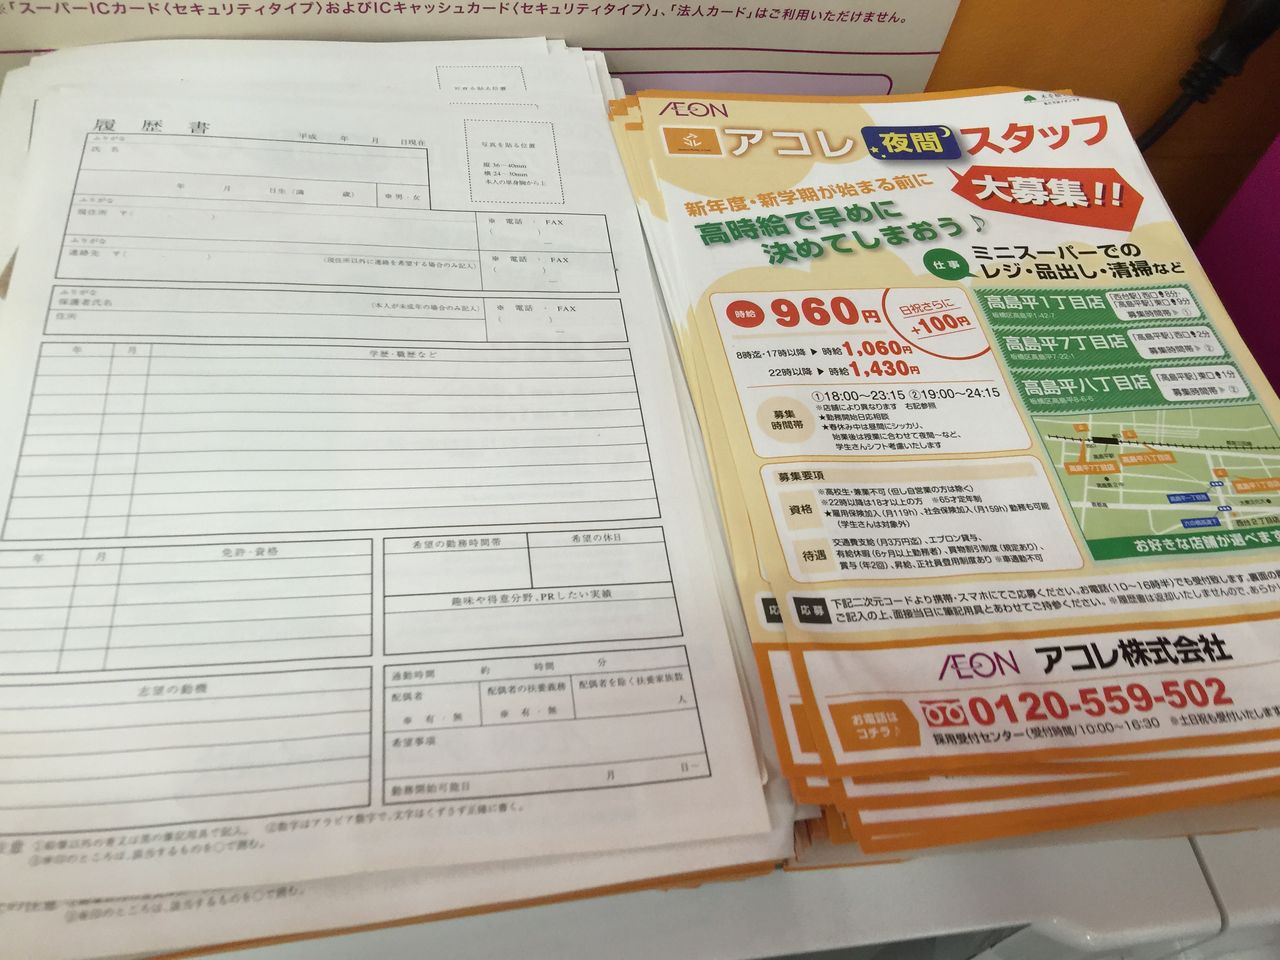 ※「スーパーICカード〈セキュリティタイプ〉およびICキャッシュカード〈セキュリティタイプ〉」、「法人カード」はご利用いただけません。
履歴書
平成 年 月 日現在
ふりがな
氏名
年 月 日生(満 歳)
※男・女
写真を貼る位置
縦36〜40mm
横24〜30mm
本人の単身胸から上
ふりがな
現住所 〒( )
※ 電話・FAX
ふりがな
連絡先 〒( )
(現住所以外に連絡を希望する場合のみ記入)
※ 電話・FAX
ふりがな
保護者氏名
(本人が未成年の場合のみ記入)
住所
※ 電話・FAX
年 月 学歴・職歴など
年 月 免許・資格
希望の勤務時間帯
希望の休日
趣味や得意分野、PRしたい実績
志望の動機
通勤時間 約 時間 分
配偶者
※ 有・無
配偶者の扶養義務
※ 有・無
配偶者を除く扶養家族数
人
希望事項
勤務開始可能日 月 日〜
②数字はアラビア数字で、文字はくずさず正確に書く。
③※印のところは、該当するものを○で囲む。
AEON
アコレ 夜間 スタッフ
大募集!!
新年度・新学期が始まる前に
高時給で早めに
決めてしまおう♪
仕事 ミニスーパーでの
レジ・品出し・清掃など
時給 960円
日祝さらに
+100円
8時迄・17時以降▶時給1,060円
22時以降▶時給1,430円
募集
時間帯
①18:00〜23:15 ②19:00〜24:15
※店舗により異なります 右記参照
★勤務開始日応相談
★春休み中は昼間にシッカリ、
始業後は授業に合わせて夜間〜など、
学生さんシフト考慮いたします
高島平1丁目店
板橋区高島平1-42-7
「西台駅」西口 8分
「高島平駅」東口 9分
募集時間帯▶①
高島平7丁目店
板橋区高島平7-22-1
「高島平駅」西口 2分
募集時間帯▶②
高島平八丁目店
板橋区高島平8-6-6
「高島平駅」東口 1分
募集時間帯▶②
高島平八丁目店
高島平7丁目店
お好きな店舗が選べます
募集要項
資格
※高校生・兼業不可(但し自営業の方は除く)
※22時以降は18才以上の方 ※65才定年制
★雇用保険加入(月119h)、社会保険加入(月159h)勤務も可能
(学生さんは対象外)
待遇
交通費支給(月3万円迄)、エプロン貸与、
有給休暇(6ヶ月以上勤務者)、買物割引制度(規定あり)、
賞与(年2回)、昇給、正社員登用制度あり ※車通勤不可
応募
下記二次元コードより携帯・スマホにてご応募ください。お電話(10〜16時半)でも受付致します。裏面の
ご記入の上、面接当日に筆記用具とあわせてご持参ください。※履歴書は返却いたしませんので、あらか
AEON アコレ株式会社
お電話は
コチラ♪
0120-559-502
採用受付センター(受付時間/10:00〜16:30 ※土日祝も受付いたします